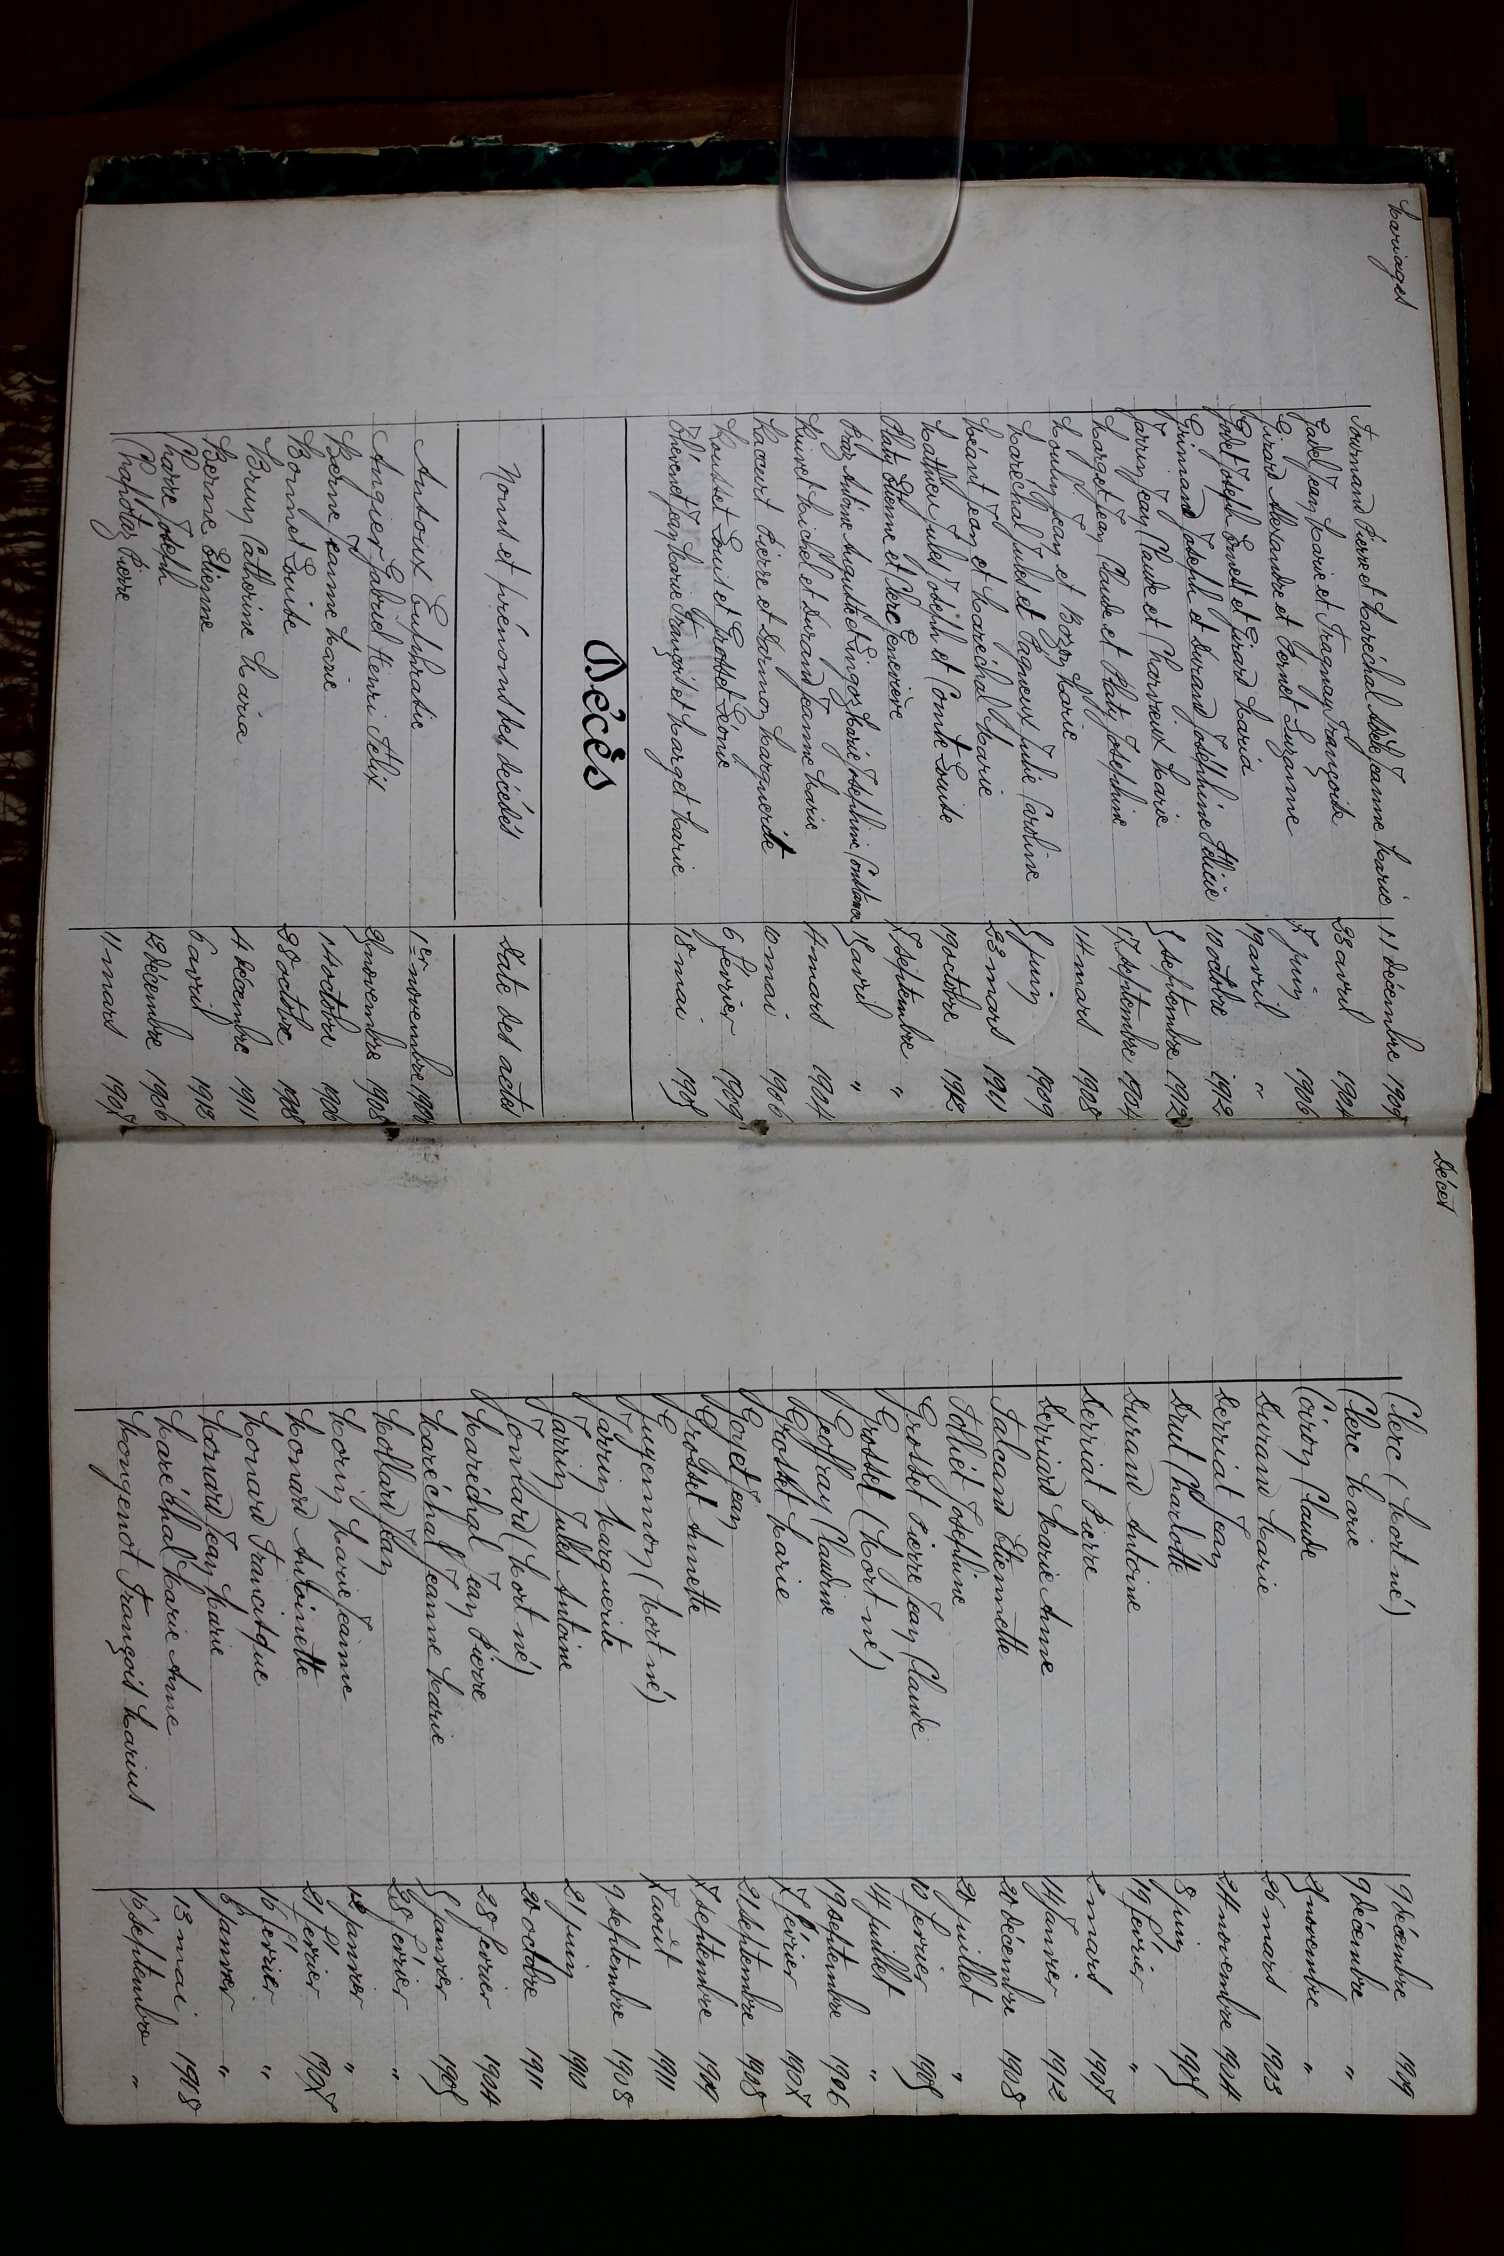 Mariages
Fournand Pierre et Maréchal Adèle Jeanne Marie 11 décembre 1909
Gadel Jean Marie et Fragnay Françoise 23 avril 1904
Girard Alexandre et Ponet Suzanne 7 juin 1906
Girard Maria 19 avril "
Grimand Joseph et Durand Joséphine Félicie 10 octobre 1912
Jarrin Jean Claude et Charvieux Marie 5 septembre 1912
Marget Jean Claude et Platy Joséphine 17 septembre 1904
Mouly Jean et Bozon Marie 14 mars 1908
Maréchal Jules et Pagneux Julie Caroline 5 juin 1909
Méant Jean et Maréchal Marie 23 mars 1911
Mathieu Jules Joseph et Comte Louise 19 octobre 1912
Platy Etienne et Clerc Genevière 17 septembre "
Praz Antoine Auguste et Lingoz Marie Joséphine Constance 15 avril "
Michel et Durand Jeanne Marie 4 mars 1904
Pierre et Darmon Marguerite 10 mai 1906
Rousset Louis et Grosset Léonie 6 février 1909
Thévenet Jean Marie François et Marget Marie 18 mai 1905
Décès
Noms et prénoms des décédés Date des actes
Antoix Euphrasie 1er novembre 1906
Augier Gabriel Henri Félix 25 novembre 1908
Berne Jeanne Marie 14 octobre 1906
Bonnet Louise 28 octobre 1908
Bruy Catherine Maria 4 décembre 1911
Berne Etienne 6 avril 1912
Charre Joseph 12 décembre 1906
Chapotaz Pierre 11 mars 1907
Décès
Clerc (Mort né) 9 décembre 1909
Clerc Marie 9 décembre "
Coiron Claude 25 novembre "
Durand Marie 26 mars 1903
Derriat Jean 24 novembre 1904
Drut Charlotte 8 juin 1905
Durand Antoine 19 février "
Derriat Pierre 2 mars 1907
Derriard Marie Anne 14 janvier 1912
Falcand Etiennette 20 décembre 1908
Folliet Joséphine 20 juillet "
Grosset Pierre Jean Claude 10 février 1905
Grosset (Mort né) 14 juillet "
Geoffray Claudine 19 septembre 1906
Grosset Marie 7 février 1907
Goyet Jean 21 septembre 1908
Grosset Annette 7 septembre 1909
Guyennon (Mort né) 7 août 1911
Jarrin Marguerite 9 septembre 1908
Jarrin Jules Antoine 21 juin 1910
Joncard (Mort né) 20 octobre 1911
Maréchal Jean Pierre 28 février 1904
Maréchal Jeanne Marie 5 janvier 1905
Mollard Jean 28 février "
Morin Marie Jeanne 12 janvier "
Monard Antoinette 21 février 1907
Monard Francisque 16 février "
Monard Jean Marie 8 janvier "
Maréchal Marie Anne 13 mai 1908
Mongenot François Marius 16 septembre "